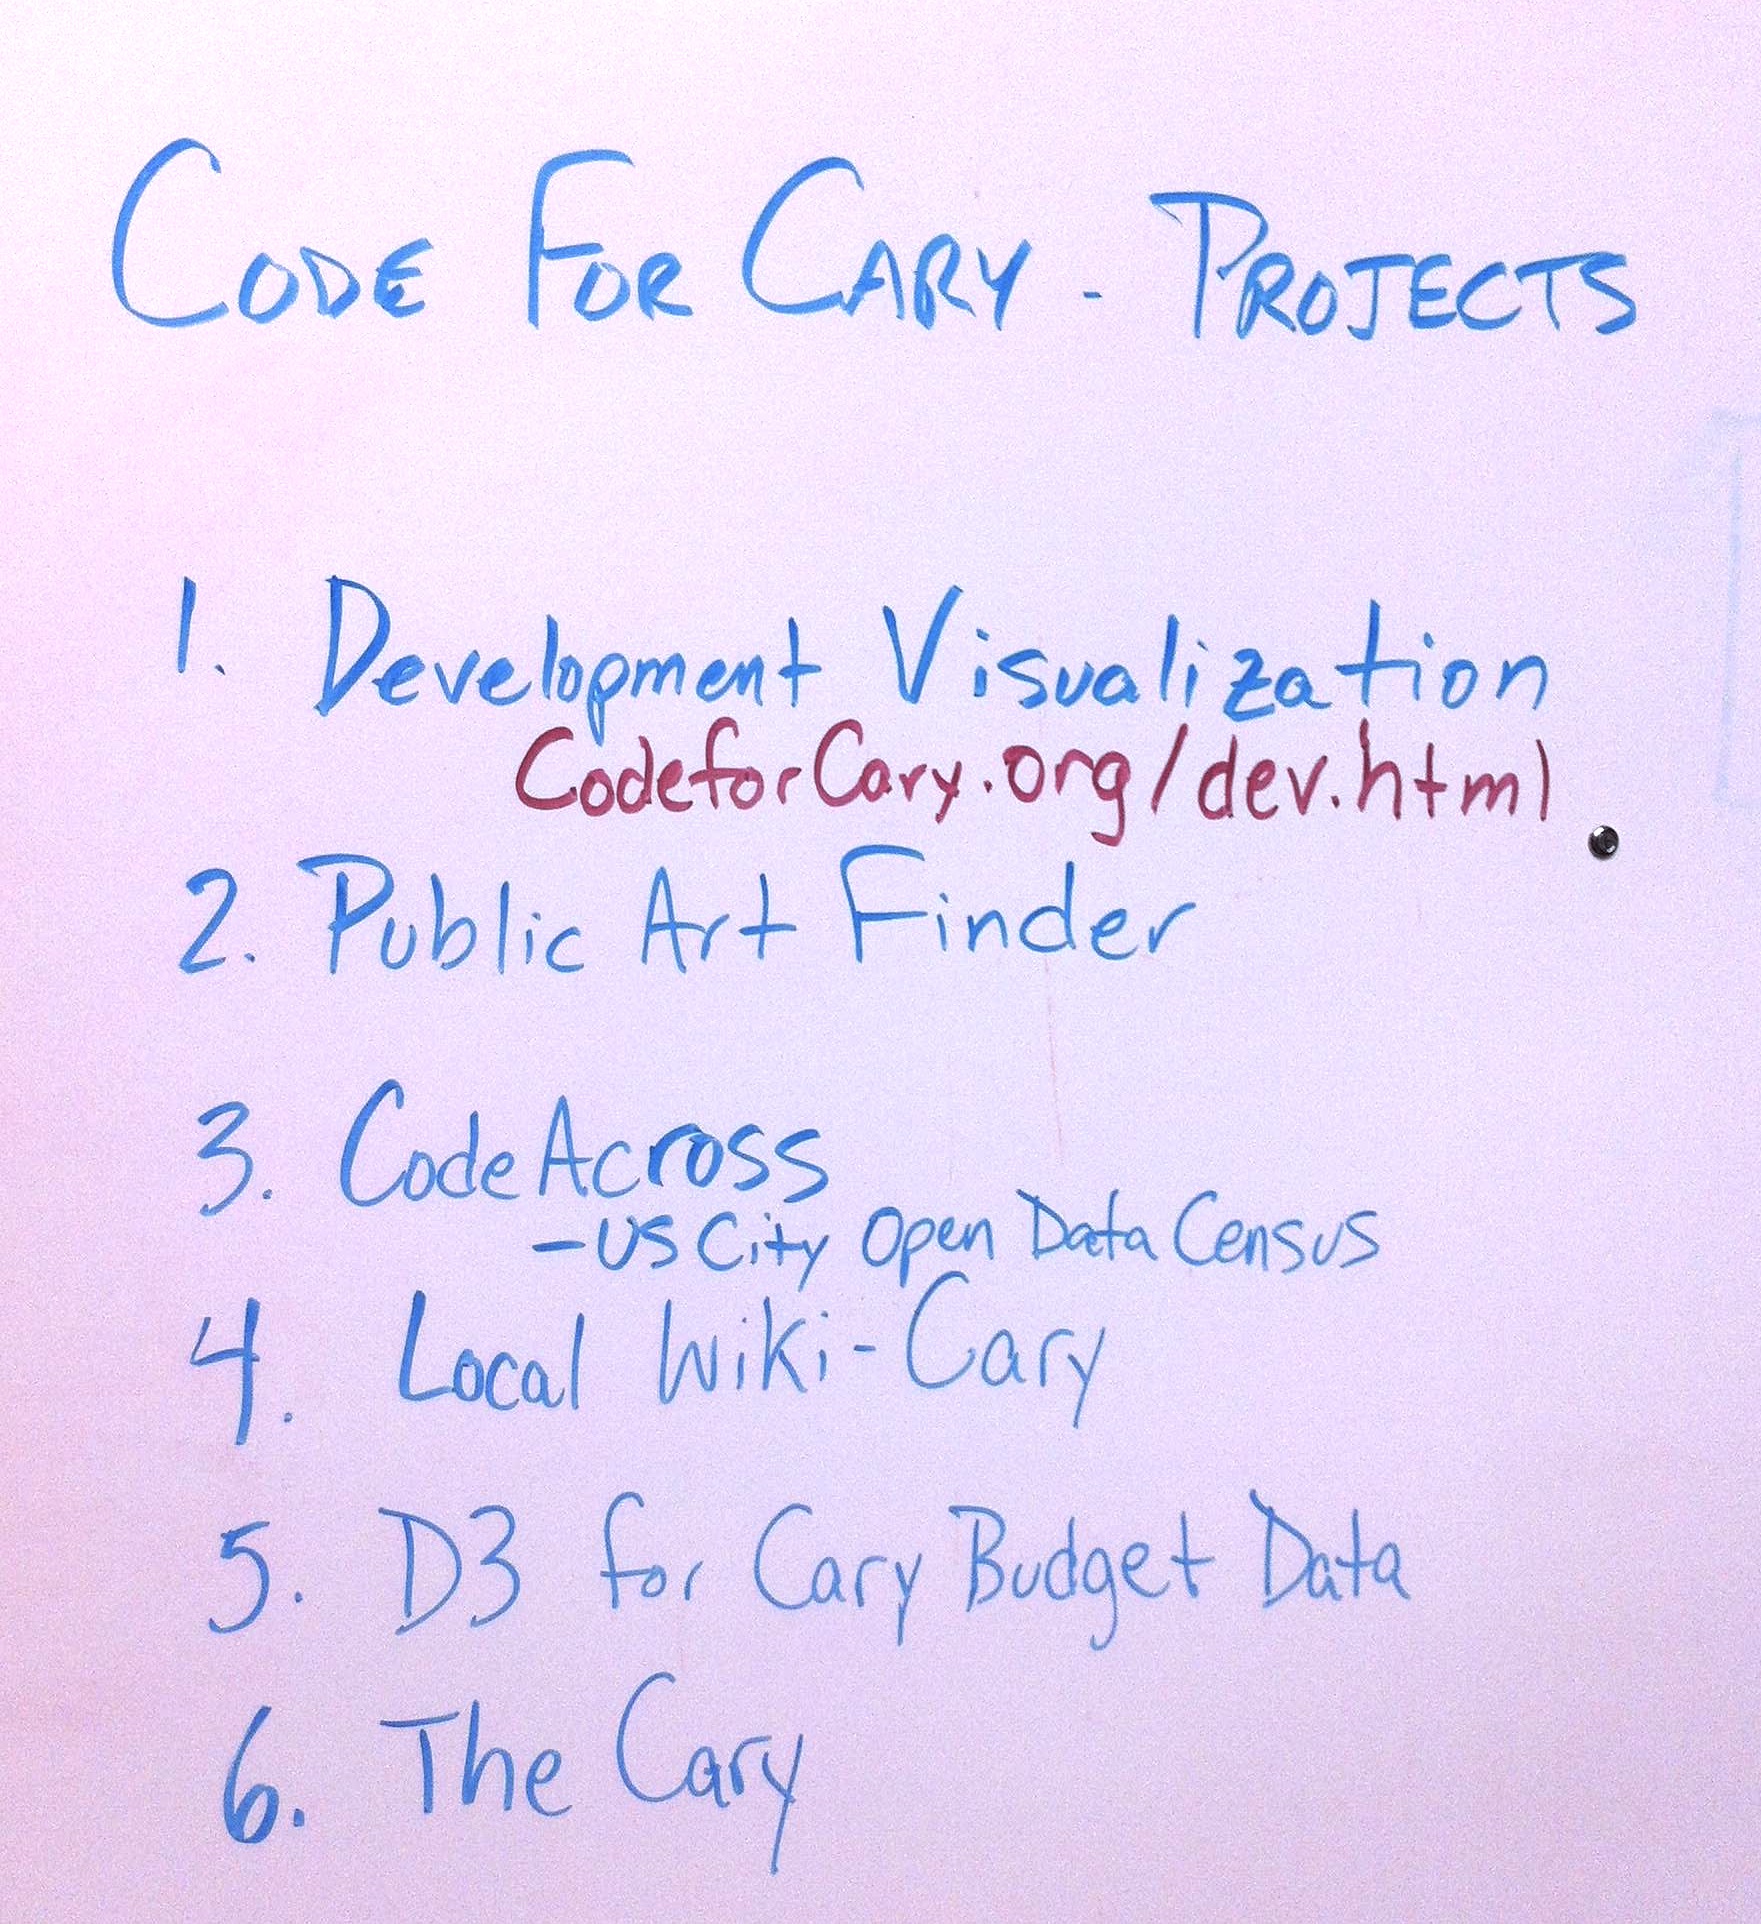 CODE FOR CARY - PROJECTS
1. Development Visualization
CodeforCary.org/dev.html
2. Public Art Finder
3. CodeAcross
-US City Open Data Census
4. Local Wiki-Cary
5. D3 for Cary Budget Data
6. The Cary